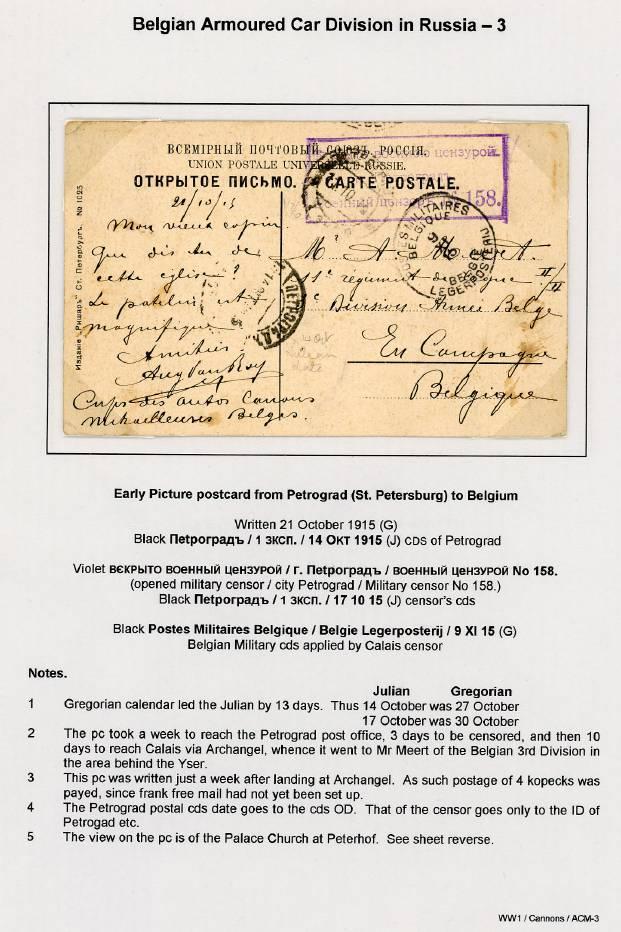 Belgian Armoured Car Division in Russia – 3
ВСЕМІРНЫЙ ПОЧТОВЫЙ СОЮЗЪ. РОССІЯ.
UNION POSTALE UNIVERSELLE. RUSSIE.
ОТКРЫТОЕ ПИСЬМО. CARTE POSTALE.
цензурой
158.
21/10/15
Mon vieux copin
que dis tu de
cette église?
Le patelin est
magnifique
Amitiés
Corps des autos Canons
Mitrailleuses Belges
Изданіе „Ришаръ“ Ст. Петербургъ. No 1025
ПЕТРОГРАДЪ
POSTES MILITAIRES
BELGIQUE
BELGIE
LEGERPOSTERIJ
M A Meert
régiment de
Division Armée Belge
En Campagne
Belgique
Early Picture postcard from Petrograd (St. Petersburg) to Belgium
Written 21 October 1915 (G)
Black Петроградъ / 1 зксп. / 14 Окт 1915 (J) cds of Petrograd
Violet вєкрыто военный цензурой / г. Петроградъ / военный цензурой No 158.
(opened military censor / city Petrograd / Military censor No 158.)
Black Петроградъ / 1 зксп. / 17 10 15 (J) censor's cds
Black Postes Militaires Belgique / Belgie Legerposterij / 9 XI 15 (G)
Belgian Military cds applied by Calais censor
Notes.
Julian Gregorian
1 Gregorian calendar led the Julian by 13 days. Thus 14 October was 27 October
17 October was 30 October
2 The pc took a week to reach the Petrograd post office, 3 days to be censored, and then 10
days to reach Calais via Archangel, whence it went to Mr Meert of the Belgian 3rd Division in
the area behind the Yser.
3 This pc was written just a week after landing at Archangel. As such postage of 4 kopecks was
payed, since frank free mail had not yet been set up.
4 The Petrograd postal cds date goes to the cds OD. That of the censor goes only to the ID of
Petrogad etc.
5 The view on the pc is of the Palace Church at Peterhof. See sheet reverse.
WW1 / Cannons / ACM-3